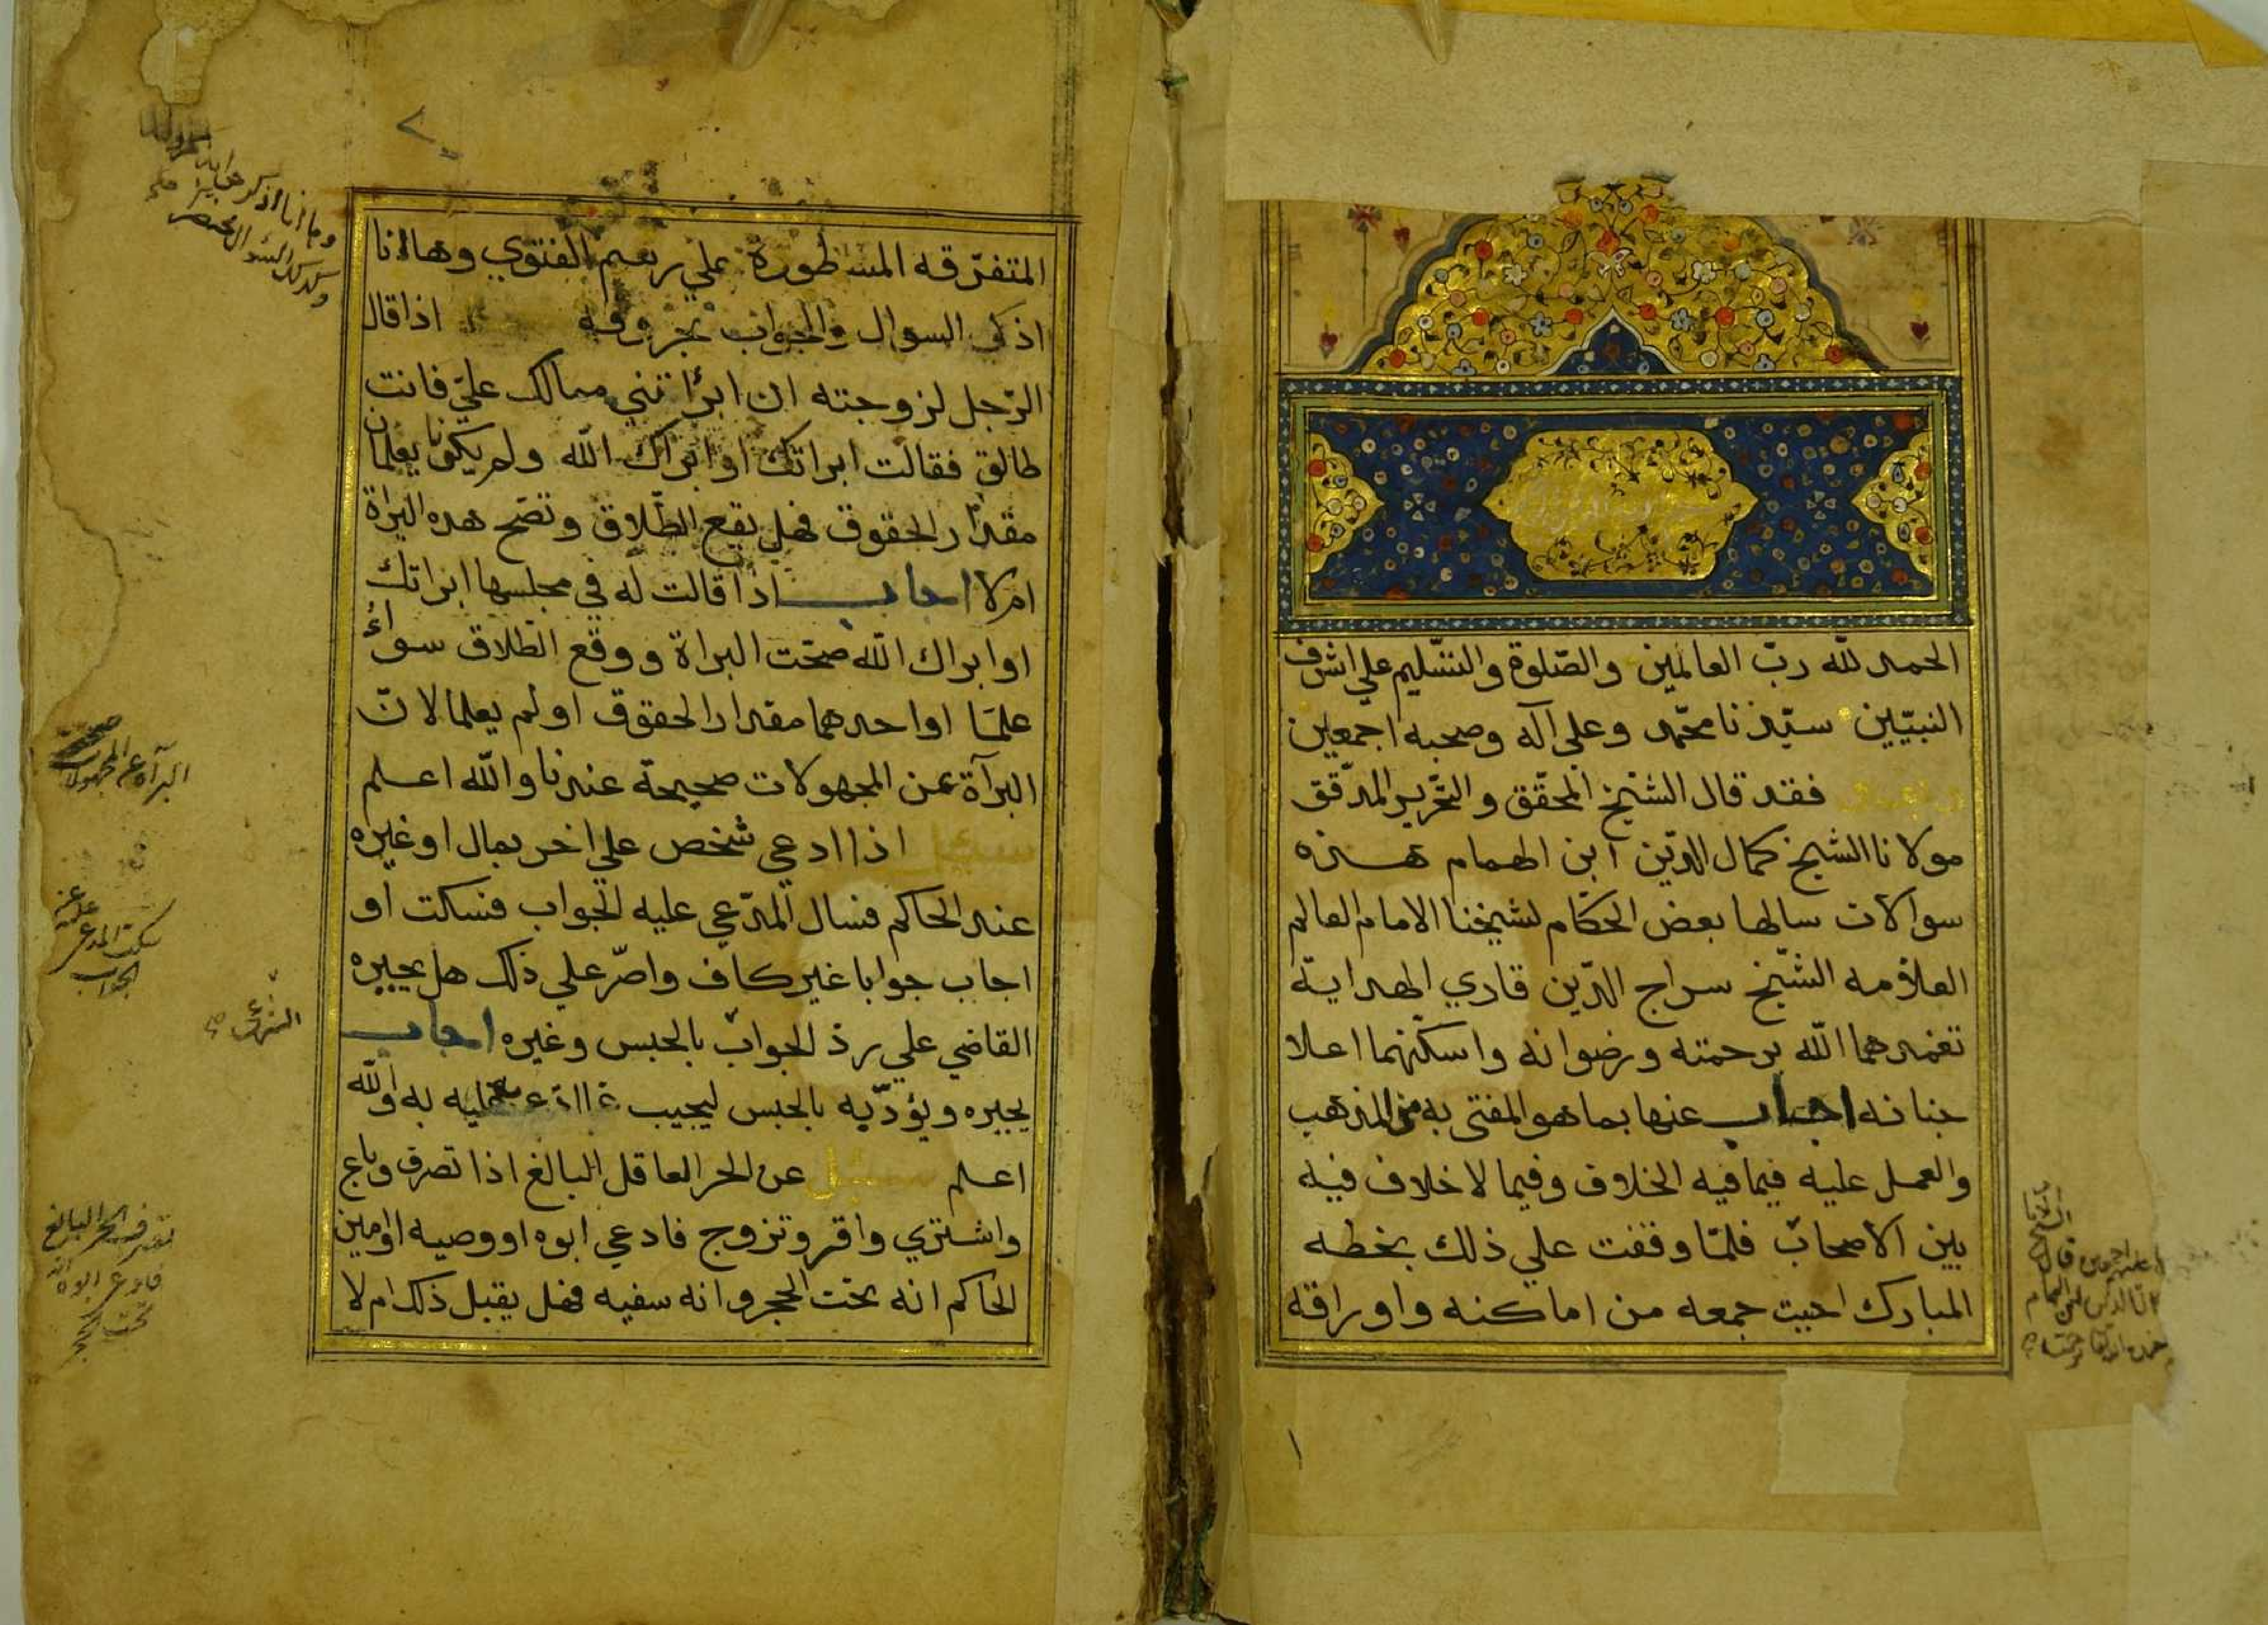 الحمد لله ربّ العالمين والصّلوة والتسّليم علي اشرف
النبيّين سيّدنا محمّد وعلي آله وصحبه اجمعين
وبعد فقد قال الشيّخ المحقّق والتحّرير المدّقق
مولانا الشيخ كمال الدّين ابن الهمام هذه
سوالات سالها بعض الحكّام لشيخنا الامام العالم
العلاّمه الشيّخ سراج الدّين قاري الهداية
تغمدهما الله برحمته ورضوانه واسكنهما اعلا
جنانه اجاب عنها بما هو المفتي به من المذهب
والعمل عليه فيما فيه الخلاف وفيما لا خلاف فيه
بين الاصحاب فلمّا وقفت علي ذلك بخطه
المبارك احببت جمعه من اماكنه واوراقه
١
٢
المتفرّقه المسطورة علي رسم الفتوي وها انا
اذكر السوال والجواب بحروفه اذا قال
الرّجل لزوجته ان ابرأتني ممالك عليّ فانت
طالق فقالت ابراتك او ابراك الله ولم يكونا يعلمان
مقدار الحقوق فهل يقع الطّلاق وتصّح هذه البراة
ام لا اجاب اذا قالت له في مجلسها ابراتك
او ابراك الله صحّت البراة ووقع الطلاق سواءً
علما او احدهما مقدار الحقوق او لم يعلما لانّ
البرآة عن المجهولات صحيحة عندنا والله اعلم
سئل اذا ادعي شخص علي اخر بمال او غيره
عند الحاكم فسال المدّعي عليه الجواب فسكت او
اجاب جوابا غير كاف واصرّ علي ذلك هل يجبره
القاضي علي رد الجواب بالحبس وغيره اجاب
يجبره ويؤدّبه بالحبس ليجيب عليه به والله
اعلم سئل عن الحر العاقل البالغ اذا تصرف وباع
واشتري واقر وتزوج فادعي ابوه او وصيه او امين
الحاكم انه تحت الحجر وانه سفيه فهل يقبل ذلك ام لا
البرآة عن المجهولات
سكت المدعي عليه عن
الجواب
تصرف الحر البالغ
فادعي ابوه انه
تحت الحجر